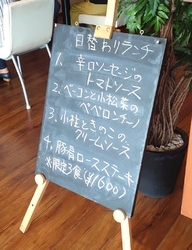 日替わりランチ
1. 辛口ソーセージの
トマトソース
2. ベーコンと小松菜の
ペペロンチーノ
3. 小柱ときのこの
クリームソース
4. 豚肩ロースステーキ
※限定3食(¥1600)